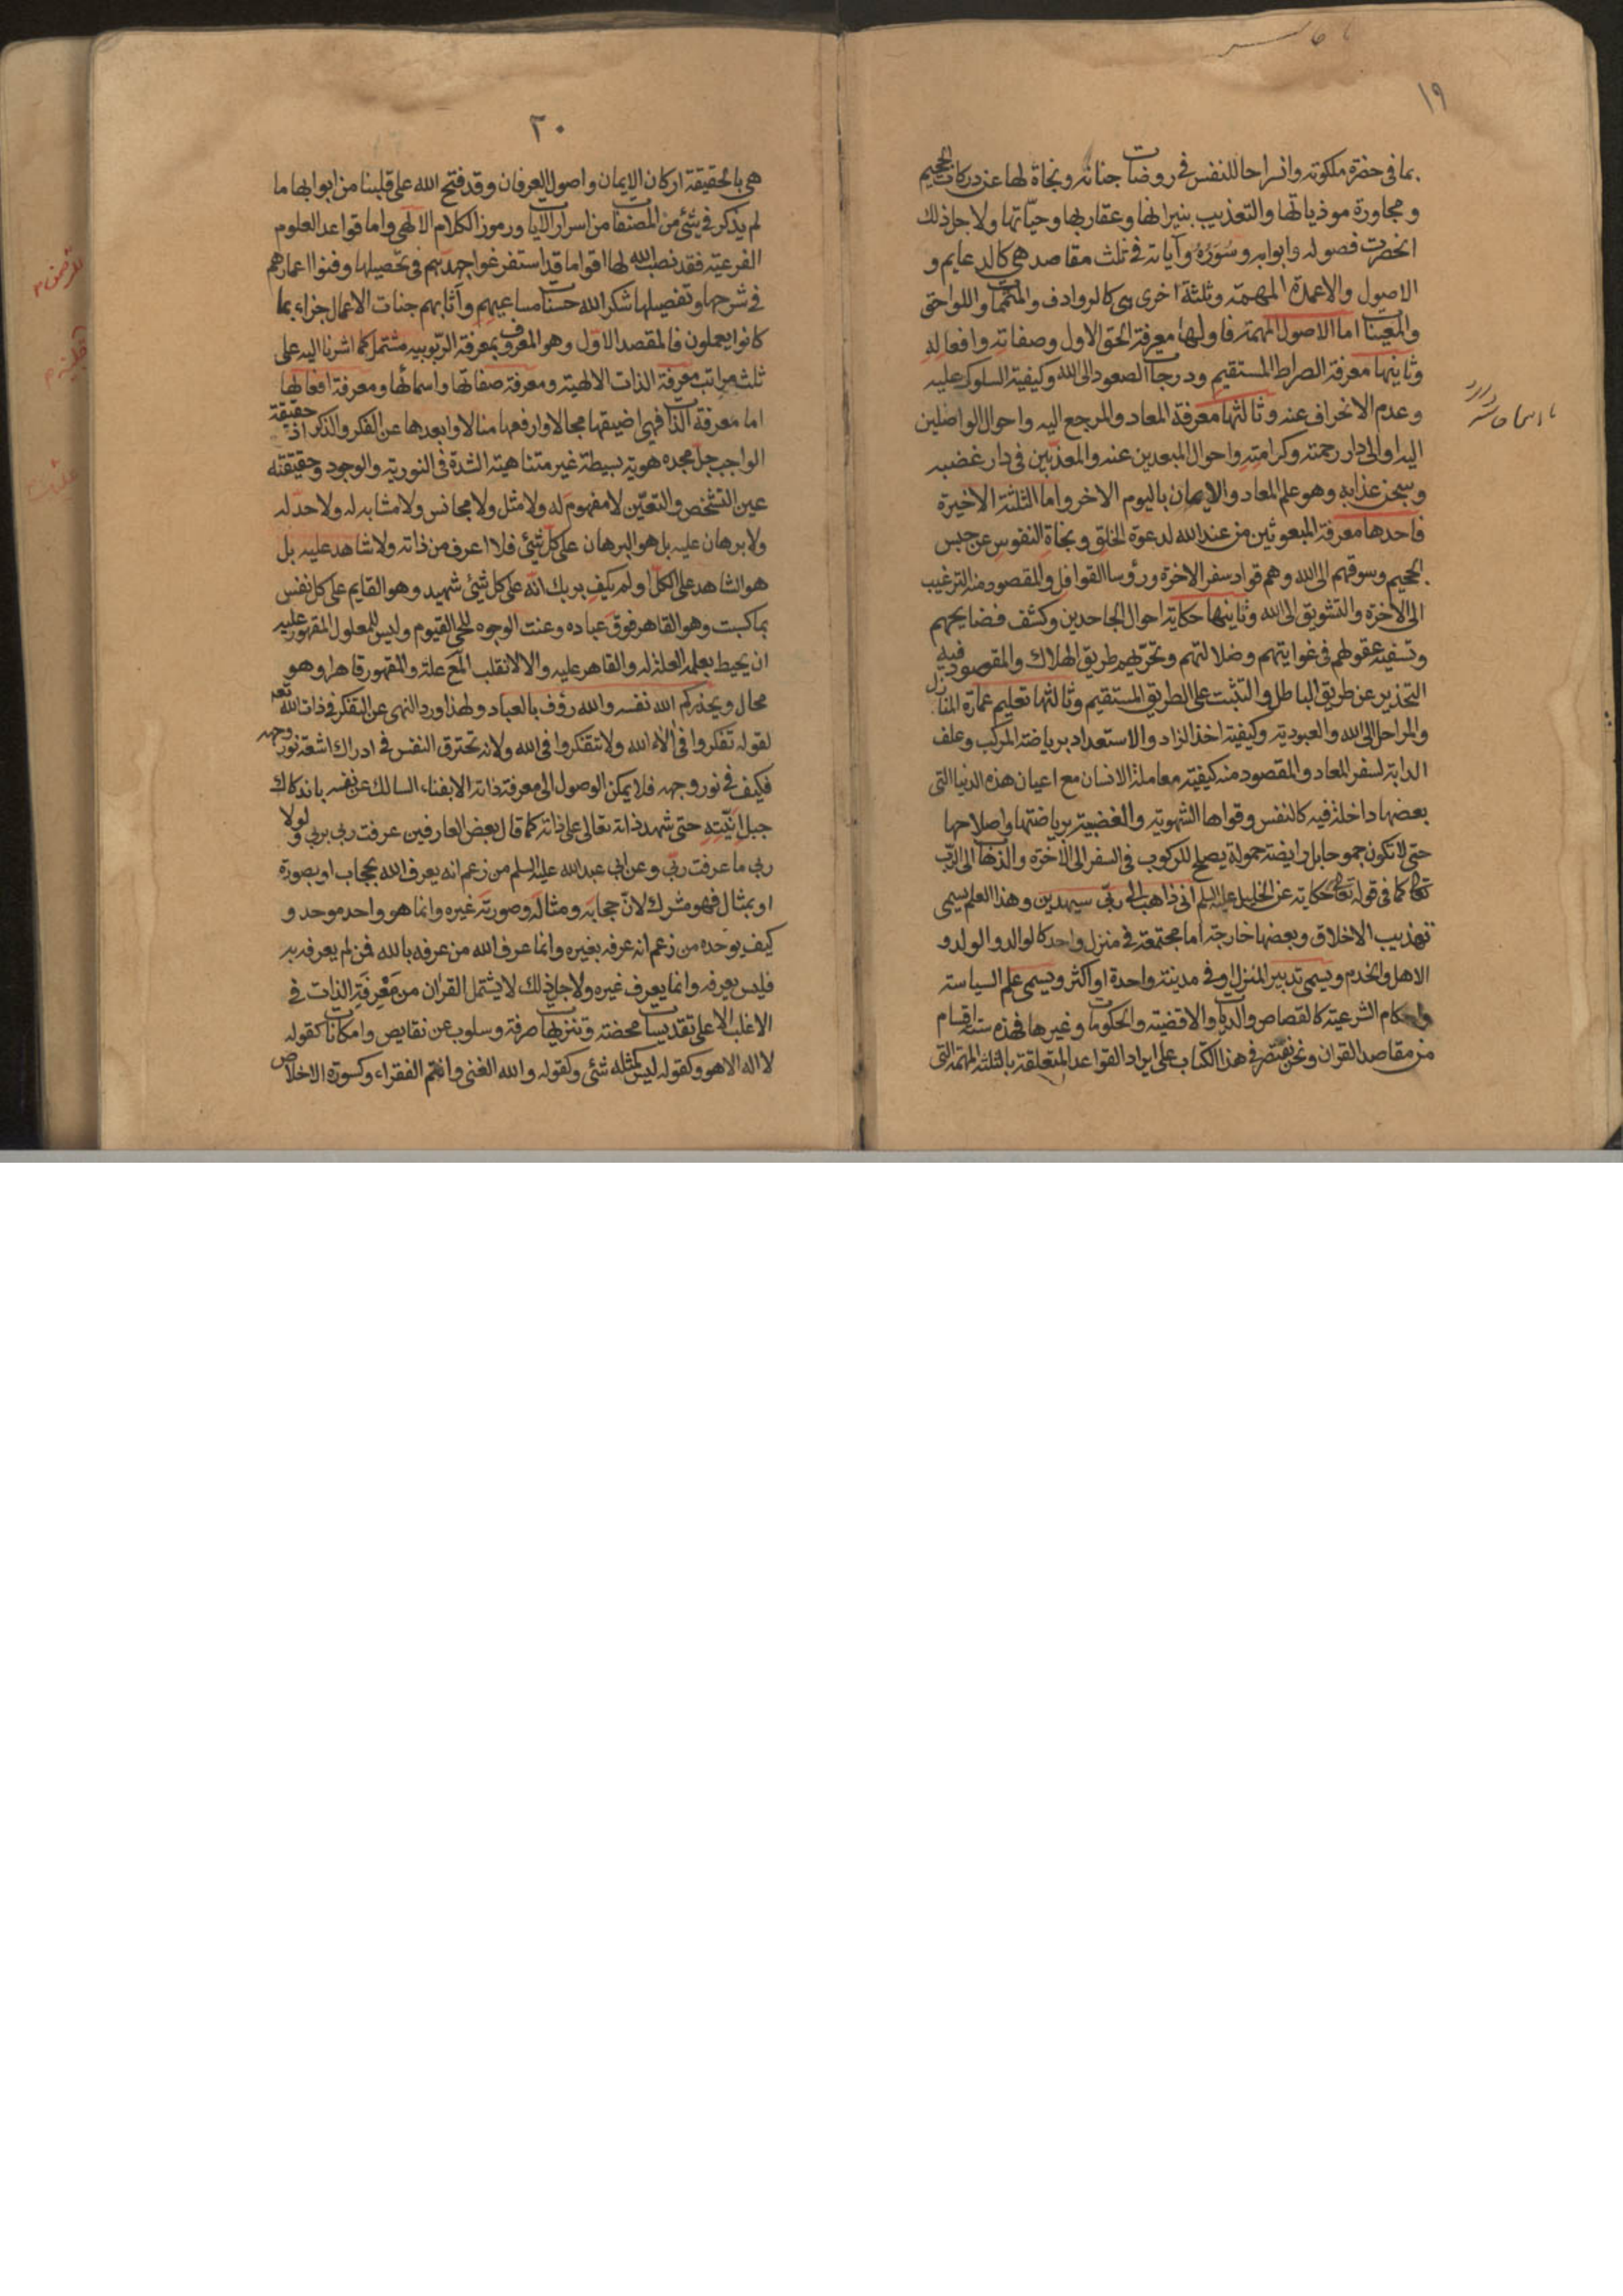 ١٩
بما فى حضرة ملكوته وانسراحا للنفس فى روضات جنانه ونجاة لها عن دركات الجحيم
ومجاورة موذياتها والتعذيب بنيرانها وعقاربها وحيّاتها ولاجل ذلك
انحصرت فصوله وابوابه وسُوَرُهُ وآياته فى ثلث مقاصد هى كالدعايم و
الاصول والاعمدة المهمة وثلثة اخرى هى كالروادف والمتممات واللواحق
والمعينات اما الاصول المهمة فاولها معرفة الحق الاول وصفاته وافعاله
وثانيها معرفة الصراط المستقيم ودرجات الصعود الى الله وكيفية السلوك عليه
وعدم الانحراف عنه وثالثها معرفة المعاد والمرجع اليه واحوال الواصلين
اليه والى دار رحمته وكرامته واحوال المبعدين عنه والمعذّبين فى دار غضبه
وسجن عذابه وهو علم المعاد والايمان باليوم الاخر واما الثلثة الاخيرة
فاحدها معرفة المبعوثين من عند الله لدعوة الخلق ونجاة النفوس عن حبس
الجحيم وسوقهم الى الله وهم قواد سفر الاخرة ورؤسا القوافل والمقصود منه الترغيب
الى الاخرة والتشويق الى الله وثانيها حكاية احوال الجاحدين وكشف فضايحهم
وتسفيه عقولهم فى غوايتهم وضلالتهم وتحرّيهم طريق الهلاك والمقصود فيه
التحذير عن طريق الباطل والتثبت على الطريق المستقيم وثالثها تعليم عمارة المنازل
والمراحل الى الله والعبودية وكيفية اخذ الزاد والاستعداد برياضة المركب وعلف
الدابة لسفر المعاد والمقصود منه كيفية معاملة الانسان مع اعيان هذه الدنيا التى
بعضها داخلة فيه كالنفس وقواها الشهوية والغضبية برياضتها واصلاحها
حتى لا تكون جموحا بل رايضة حمولة يصلح للركوب فى السفر الى الاخرة والذهاب الى الرّب
تعالى كما فى قوله تعالى حكاية عن الخليل عليه السلم انى ذاهب الى ربّى سيهدين وهذا العلم يسمى
تهذيب الاخلاق وبعضها خارجة اما مجتمعة فى منزل واحد كالوالد والولد و
الاهل والخدم ويسمى تدبير المنزل او فى مدينة واحدة او اكثر ويسمى علم السياسة
واحكام الشرعية كالقصاص والديات والاقضية والحكومات وغيرها فهذه ستة اقسام
من مقاصد القران ونحن نقتصر فى هذا الكتاب على ايراد القواعد المتعلقة بالثلثة المهمة التى
٢٠
هى بالحقيقة اركان الايمان واصول العرفان وقد فتح الله على قلبنا من ابوابها ما
لم يذكر فى شئ من المصنفات من اسرار الايات ورموز الكلام الالهى واما قواعد العلوم
الفرعية فقد نصب الله لها اقواما قد استفرغوا جهدهم فى تحصيلها وفنوا اعمارهم
فى شرحها وتفصيلها شكر الله حسنات مساعيهم وآثابهم جنات الاعمال جزاء بما
كانوا يعملون فالمقصد الاوّل وهو المعروف بمعرفة الرّبوبيه مشتمل كما اشرنا اليه على
ثلث مراتب معرفة الذات الالهية ومعرفة صفاتها واسمائها ومعرفة افعالها
اما معرفة الذات فهى اضيقها مجالا وارفعها منالا وابعدها عن الفكر والذكر اذ حقيقة
الواجب جلّ مجده هوية بسيطة غير متناهية الشدة فى النورية والوجود وحقيقته
عين التشخص والتعيّن لا مفهوم له ولا مثل ولا مجانس ولا مشابه له ولا حدّ له
ولا برهان عليه بل هو البرهان على كل شئ فلا اعرف من ذاته ولا شاهد عليه بل
هو الشاهد على الكلّ او لم يكف بربك انّه على كل شئ شهيد وهو القايم على كل نفس
بما كسبت وهو القاهر فوق عباده وعنت الوجوه للحى القيوم وليس للمعلول المقهور عليه
ان يحيط بعلمه العلة له والقاهر عليه والا لانقلب المع علة والمقهور قاهرا وهو
محال ويحذركم الله نفسه والله رؤف بالعباد ولهذا ورد النهى عن التفكر فى ذات الله تعه
لقوله تفكروا فى الاء الله ولا تتفكروا فى الله ولانه تحترق النفس فى ادراك اشعة نور وجهه
فكيف فى نور وجهه فلا يمكن الوصول الى معرفة ذاته الا بفناء السالك عن نفسه باندكاك
جبل انّيّته حتى شهد ذاته تعالى على ذاته كما قال بعض العارفين عرفت ربى بربى ولولا
ربى ما عرفت ربّى وعن ابى عبد الله عليه السلم من زعم انه يعرف الله بحجاب او بصورة
او بمثال فهو مشرك لانّ حجابه ومثاله وصورته غيره وانما هو واحد موحد و
كيف يوحده من زعم انه عرفه بغيره وانما عرف الله من عرفه بالله فمن لم يعرفه به
فليس يعرفه وانما يعرف غيره ولاجل ذلك لا يشتمل القران من مَعْرِفَةِ الذات فى
الاغلب الا على تقديسات محضة وتنزيهات صرفة وسلوب عن نقايص وامكانات كقوله
لا اله الا هو وكقوله ليس كمثله شئ وكقوله والله الغنى وانتم الفقراء وكسورة الاخلاص